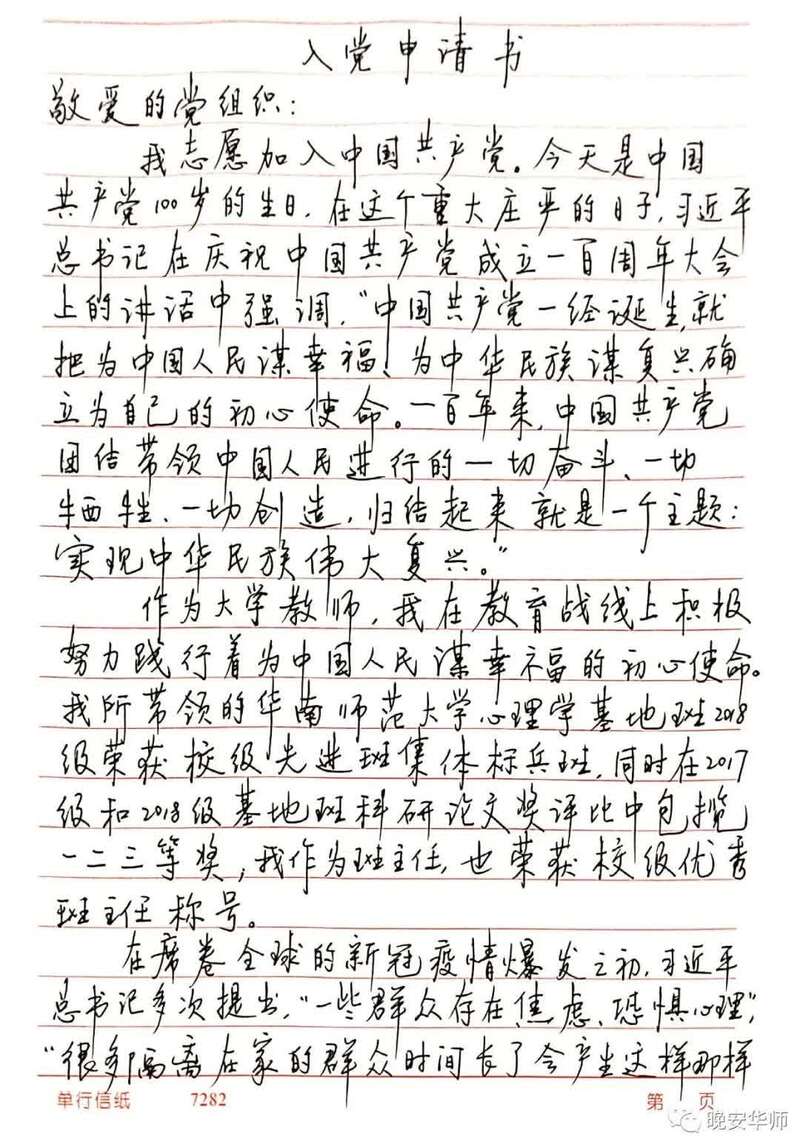 入党申请书
敬爱的党组织：
我志愿加入中国共产党。今天是中国
共产党100岁的生日，在这个重大庄严的日子，习近平
总书记在庆祝中国共产党成立一百周年大会
上的讲话中强调，“中国共产党一经诞生，就
把为中国人民谋幸福、为中华民族谋复兴确
立为自己的初心使命。一百年来，中国共产党
团结带领中国人民进行的一切奋斗、一切
牺牲、一切创造，归结起来就是一个主题：
实现中华民族伟大复兴。”
作为大学教师，我在教育战线上积极
努力践行着为中国人民谋幸福的初心使命。
我所带领的华南师范大学心理学基地班2018
级荣获校级先进班集体标兵班，同时在2017
级和2018级基地班科研论文奖评比中包揽
一二三等奖，我作为班主任，也荣获校级优秀
班主任称号。
在席卷全球的新冠疫情爆发之初，习近平
总书记多次提出，“一些群众存在焦虑、恐惧心理”，
“很多隔离在家的群众时间长了会产生这样那样
单行信纸 7282 第 页
晚安华师